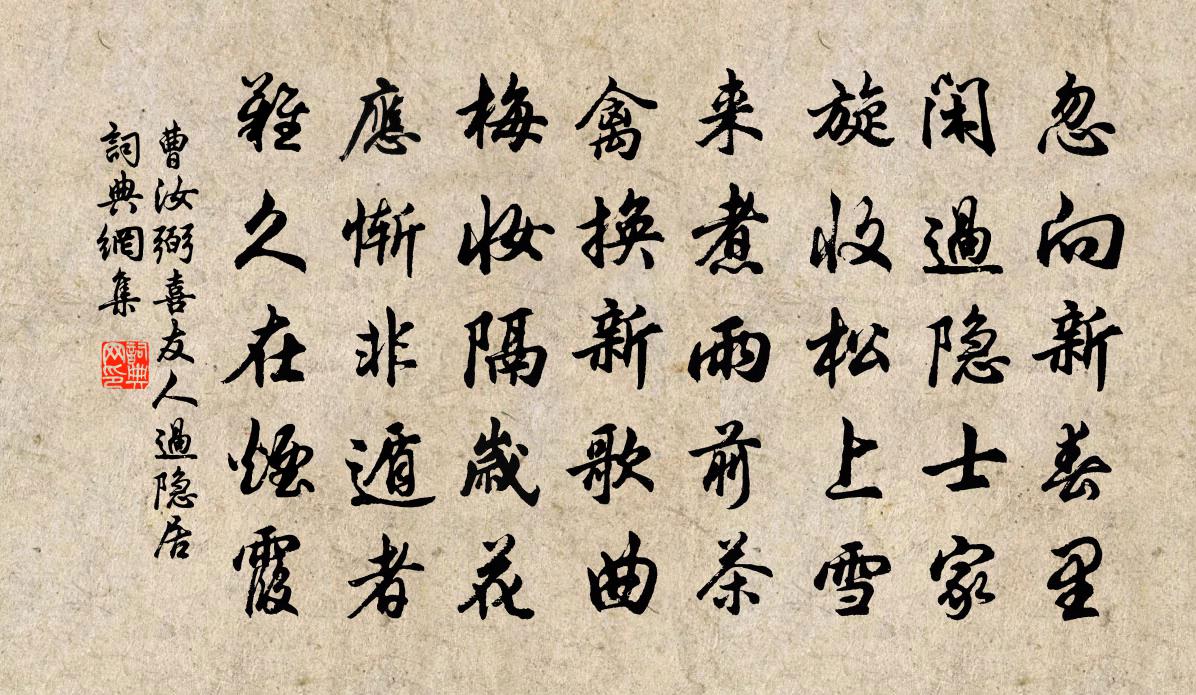 忽向新春里
闲過隐士家
旋收松上雪
来煮雨前茶
禽换新歌曲
梅妆隔歲花
應慚非遁者
難久在煙霞
曹汝弼喜友人過隐居
詞典網集
詞典网印